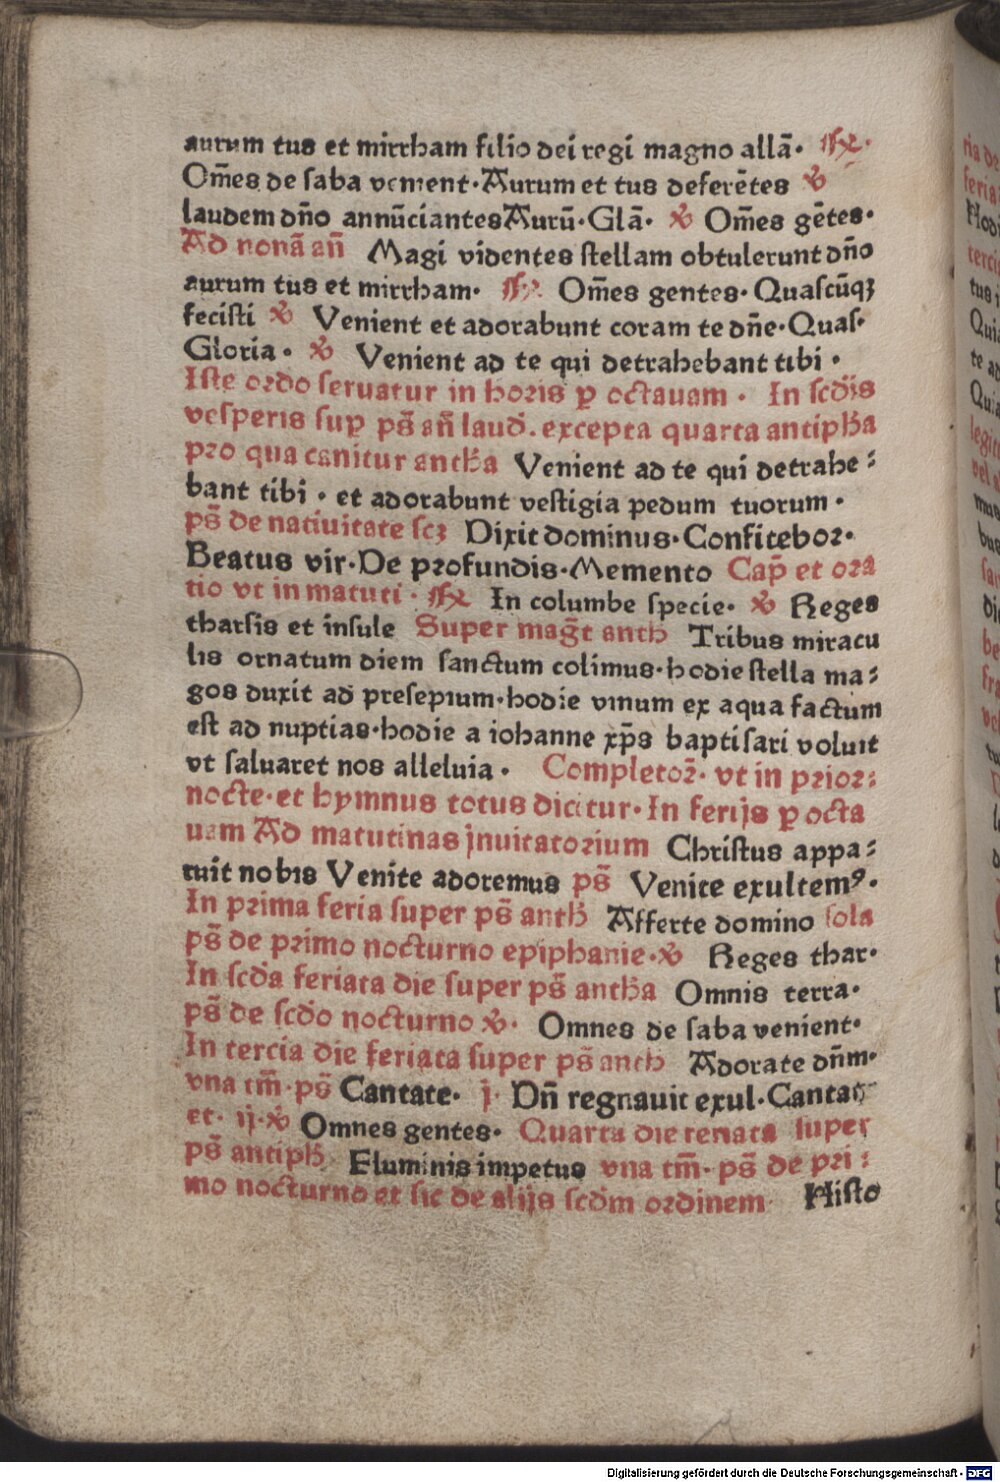 aurum tus et mirrham filio dei regi magno allā· ℟·
Om̄es de saba venient·Aurum et tus deferētes ℣
laudem dn̄o annūciantes Aurū·Glā· ℣ Om̄es gētes·
Ad nonā an̄ Magi videntes stellam obtulerunt dn̄o
aurum tus et mirrham· ℟· Om̄es gentes· Quascūqꝫ
fecisti ℣ Venient et adorabunt coram te dn̄e·Quas·
Gloria· ℣ Venient ad te qui detrahebant tibi·
Iste ordo seruatur in horis ꝑ octauam· In scd̄is
vesperis sup ps̄ an̄ laud̄. excepta quarta antiph̄a
pro qua canitur anth̄a Venient ad te qui detrahe⸗
bant tibi· et adorabunt vestigia pedum tuorum·
ps̄ de natiuitate scꝫ Dixit dominus·Confitebor·
Beatus vir·De profundis·Memento Cap̄ et ora
tio vt in matuti· ℟ In columbe specie· ℣ Reges
tharsis et insule Super mag̃t anth̄ Tribus miracu
lis ornatum diem sanctum colimus·hodie stella ma⸗
gos duxit ad presepium·hodie vinum ex aqua factum
est ad nuptias·hodie a iohanne xp̄s baptisari voluit
vt saluaret nos alleluia· Completoꝝ̄· vt in prior⸗
nocte·et hymnus totus dicitur·In ferijs ꝑ octa
uam Ad matutinas jnuitatorium Christus appa⸗
ruit nobis Venite adoremus ps̄ Venite exultemꝰ·
In prima feria super ps̄ anth̄ Afferte domino sola
ps̄ de primo nocturno epiphanie·℣ Reges thar·
In scd̄a feriata die super ps̄ anth̄a Omnis terra·
ps̄ de scd̄o nocturno ℣· Omnes de saba venient·
In tercia die feriata super ps̄ anth̄ Adorate dn̄m·
vna tm̄·ps̄ Cantate· j· Dn̄ regnauit exul·Cantat
et· ij·℣ Omnes gentes· Quarta die feriata super
ps̄ antiph̄ Fluminis impetus vna tm̄· ps̄ de pri⸗
mo nocturno et sic de alijs scd̄m ordinem Histo
ria de
feria
Hod
tercia
tus
Qui
te ad
legi
vel
Digitalisierung gefördert durch die Deutsche Forschungsgemeinschaft · DFG